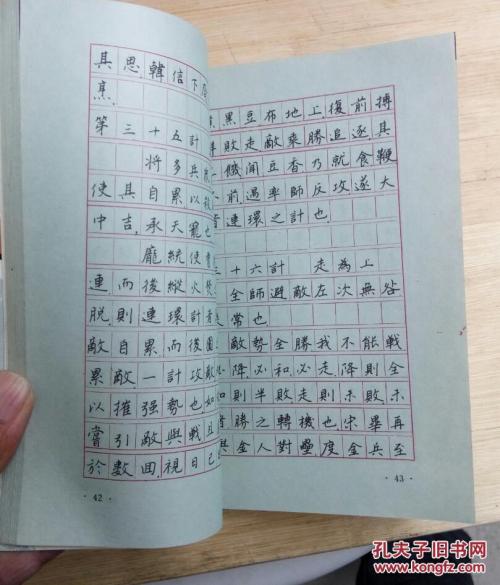 其思韓信下
焦
第三十五計
將多兵
使其自累以
中吉,承天寵也
龐統使
連,而後縱火
脫,則連環計
敵自累,而後圖
累敵一計攻敵
以摧强勢也如
嘗引敵與戰且
於數回,視日已
· 42 ·
黑豆布地上,復前搏
敗走敵乘勝追逐其
饑聞豆香乃就食鞭
前,遇率師反攻遂大
連環之計也
十六計 走為上
全師避敵左次無咎
常也
敵勢全勝我不能戰
降必和必走降則全
和則半敗走則未敗未
勝之轉機也宋畢再
與金人對壘,度金兵至
· 43 ·
孔夫子旧书网
www.kongfz.com